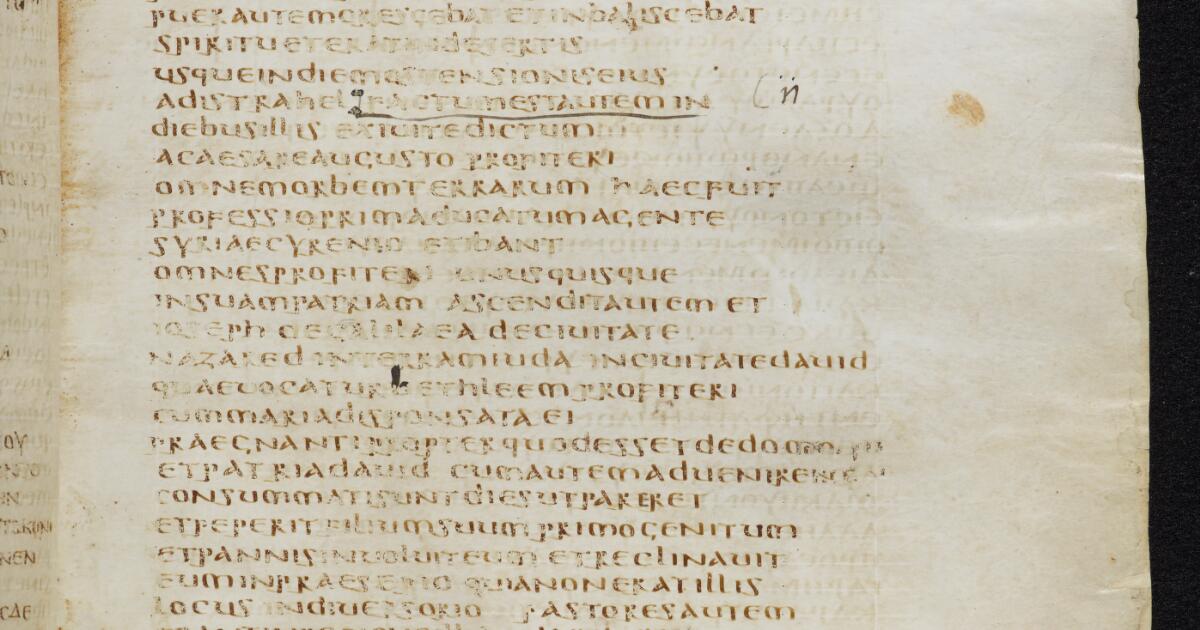 PUERAUTEMCRESCEBAT ETINBALISCEBAT
SPIRITUETERATINDESERTIS
USQUEINDIEMOSTENSIONISEIUS
ADISTRAHEL FACTUMESTAUTEM IN
DIEBUSILLIS EXIUITEDICTUM
ACAESAREAUGUSTO PROFITERI
OMNEMORBEMTERRARUM HAECFUIT
PROFESSIOPRIMADUCATUMAGENTE
SYRIAECYRENIO ETIBANT
OMNESPROFITERI UNUSQUISQUE
INSUAMPATRIAM ASCENDITAUTEM ET
IOSEPH DEGALILAEA DECIUITATE
NAZARED INTERRAMIUDA INCIUITATEDAUID
QUAEUOCATURBETHLEEM PROFITERI
CUMMARIADISPONSATA EI
PRAEGNANTI PROPTERQUODESSETDEDOMO
ETPATRIADAUID CUMAUTEMADUENIRENT
CONSUMMATISUNTDIESUTPARERET
ETPEPERIT FILIUMSUUM PRIMOGENITUM
ETPANNISINUOLUITEUM ETRECLINAUIT
EUMINPRAESEPIO QUIANONERATILLIS
LOCUS INDIUERSORIO PASTORESAUTEM